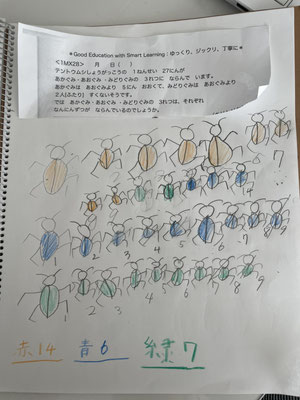 ＊Good Education with Smart Learning：ゆっくり、ジックリ、丁寧に＊
＜1MX28＞　月　日（　）
テントウムシしょうがっこうの　１ねんせい　27にんが
あかぐみ・あおぐみ・みどりぐみの　３れつに　ならんで　います。
あかぐみは　あおぐみより　５にん　おおくて、みどりぐみは　あおぐみより
２人(ふたり)　すくないそうです。
では　あかぐみ・あおぐみ・みどりぐみの　３れつは、それぞれ
なんにんずつが　ならんでいるのでしょうか。
7
1 2 3 4 5 6 7 8 9
赤14 青6 緑7